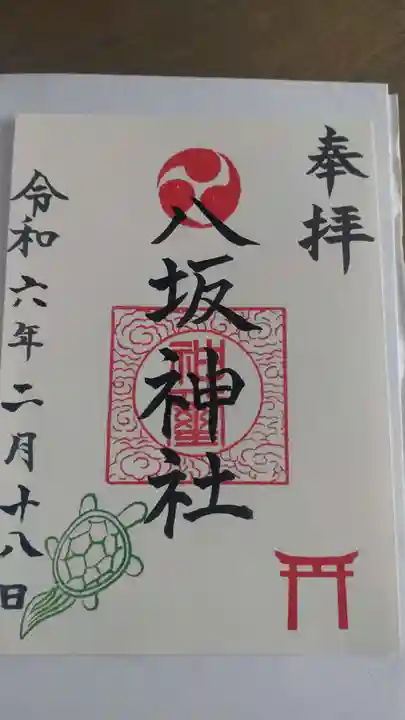 奉拝
八坂神社
令和六年二月十八日